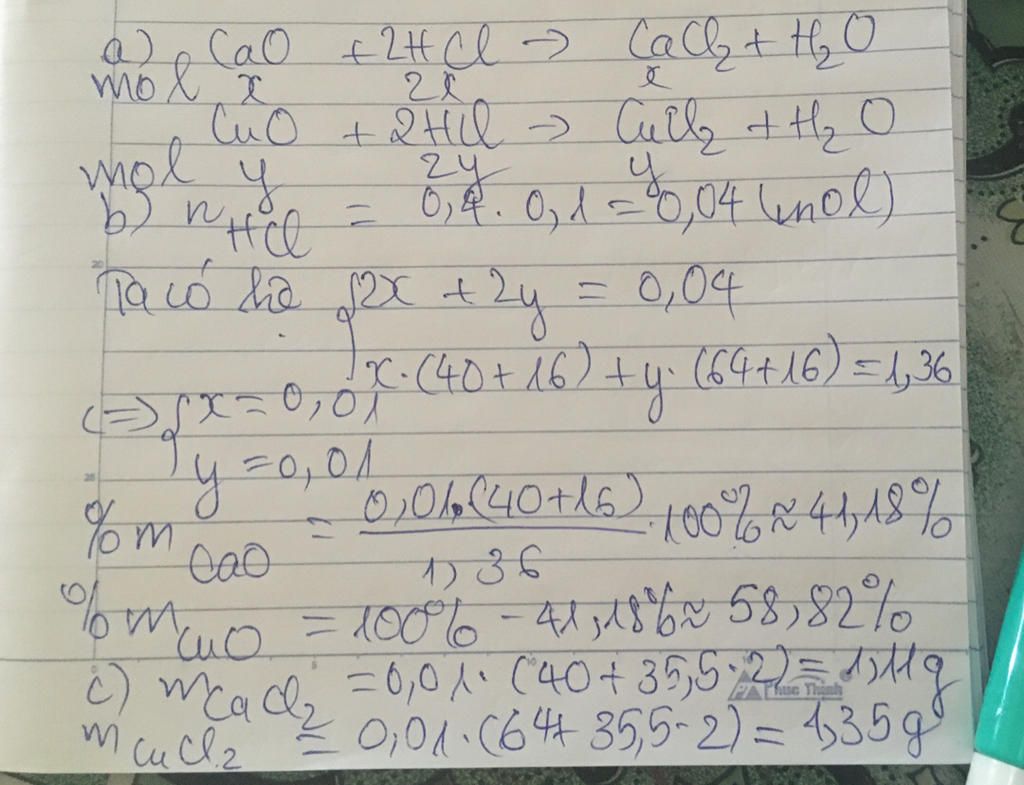 a) CaO + 2HCl → CaCl₂ + H₂O
mol x 2x x
CuO + 2HCl → CuCl₂ + H₂O
mol y 2y y
b) n HCl = 0,4 . 0,1 = 0,04 (mol)
Ta có hệ { 2x + 2y = 0,04
x · (40 + 16) + y · (64 + 16) = 1,36
<=> { x = 0,01
y = 0,01
%m CaO = 0,01.(40+16) / 1,36 . 100% ≈ 41,18%
%m CuO = 100% - 41,18% ≈ 58,82%
c) m CaCl₂ = 0,01 · (40 + 35,5 · 2) = 1,11g
Phuc Thinh
m CuCl₂ = 0,01 · (64 + 35,5 · 2) = 1,35g